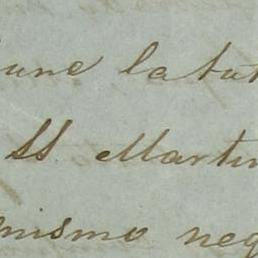 une la tut
SS Martin
mismo neg